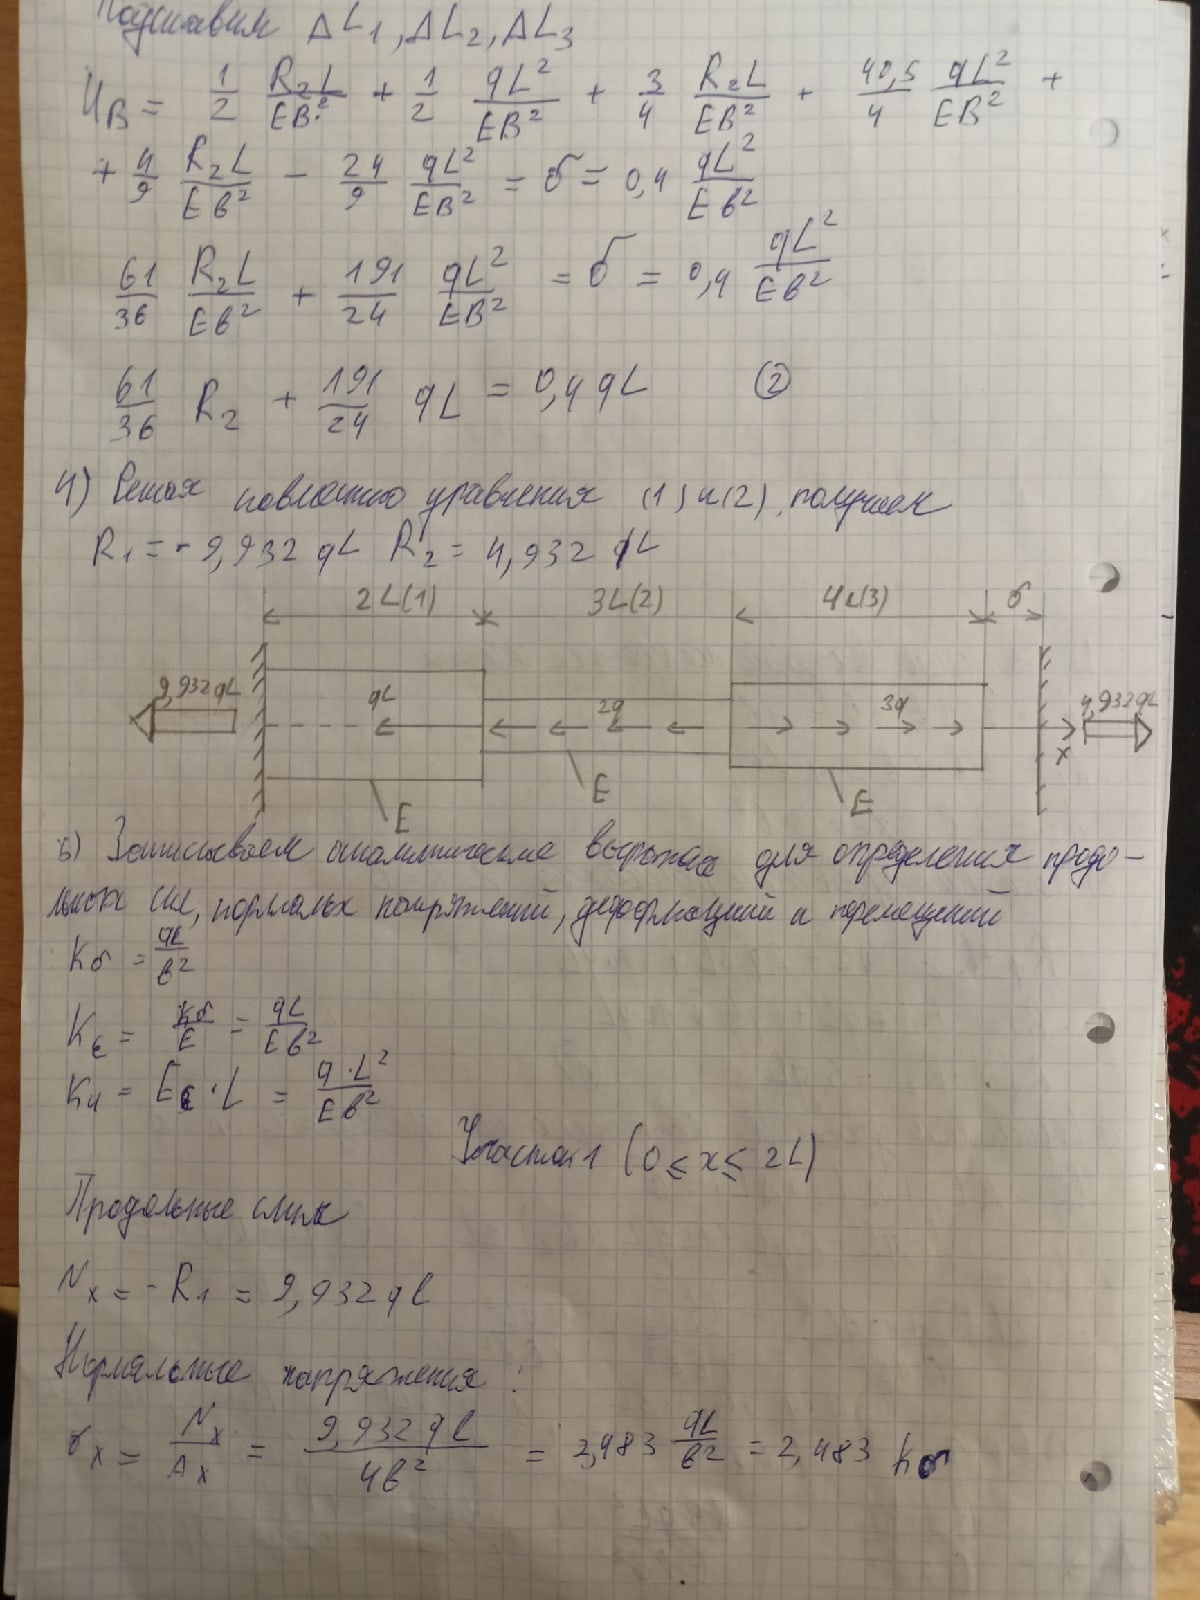 Подставим ΔL1, ΔL2, ΔL3
UB = 1/2 R2L/EB² + 1/2 qL²/EB² + 3/4 R2L/EB² + 40,5/4 qL²/EB² +
+ 4/9 R2L/Eв² − 24/9 qL²/EB² = б = 0,4 qL²/Eв²
61/36 R2L/Eв² + 191/24 qL²/EB² = б = 0,4 qL²/Eв²
61/36 R2 + 191/24 qL = 0,4 qL (2)
4) Решая уравнения (1) и (2), получаем
R1 = - 9,932 qL R2 = 4,932 qL
2L(1) 3L(2) 4L(3) б
9,932qL qL 2q 3q 4,932qL
x
E E E
5) Записываем для определения продо-
льных сил, напряжений, деформаций и перемещений
Kб = qL/в²
Kε = Kб/E = qL/Eв²
Ku = Eε · L = q·L²/Eв²
Участок 1 (0 ≤ x ≤ 2L)
Продольные силы
Nx = - R1 = 9,932 ql
Нормальные напряжения :
бx = Nx/Ax = 9,932 ql/4в² = 2,483 qL/в² = 2,483 Kб